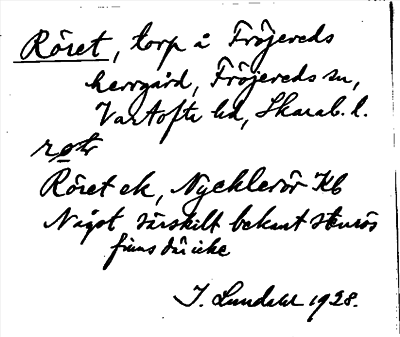 Röret, torp å Fröjereds
herrgård, Fröjereds sn,
Vartofta hd, Skarab. l.
Röret ek, Nycklerör Kb
Något särskilt bekant stenrös
finns där icke
J. Lundahl 1928.